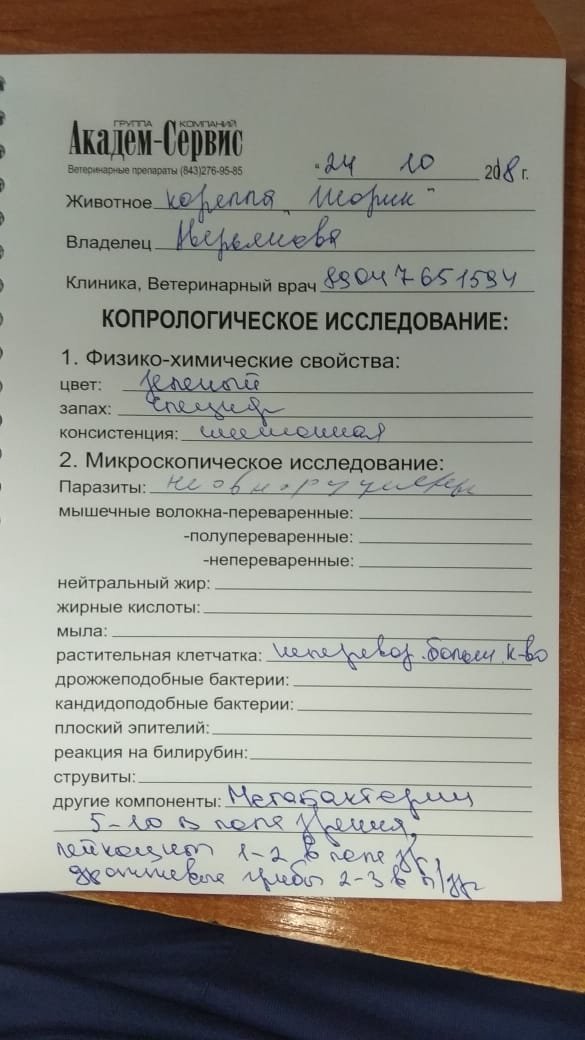 ГРУППА КОМПАНИЙ
Академ-Сервис
Ветеринарные препараты (843)276-95-85
"24 10 2018 г.
Животное корелла "Шорик"
Владелец
Клиника, Ветеринарный врач 89047651594
КОПРОЛОГИЧЕСКОЕ ИССЛЕДОВАНИЕ:
1. Физико-химические свойства:
цвет: зеленый
запах: специф
консистенция:
2. Микроскопическое исследование:
Паразиты: не обнаружены
мышечные волокна-переваренные:
-полупереваренные:
-непереваренные:
нейтральный жир:
жирные кислоты:
мыла:
растительная клетчатка: неперевар. больш. к-во
дрожжеподобные бактерии:
кандидоподобные бактерии:
плоский эпителий:
реакция на билирубин:
струвиты:
другие компоненты: Метабактерии
5-10 в поле зрения,
лейкоциты 1-2 в поле зр,
дрожжевые грибы 2-3 в п/зр